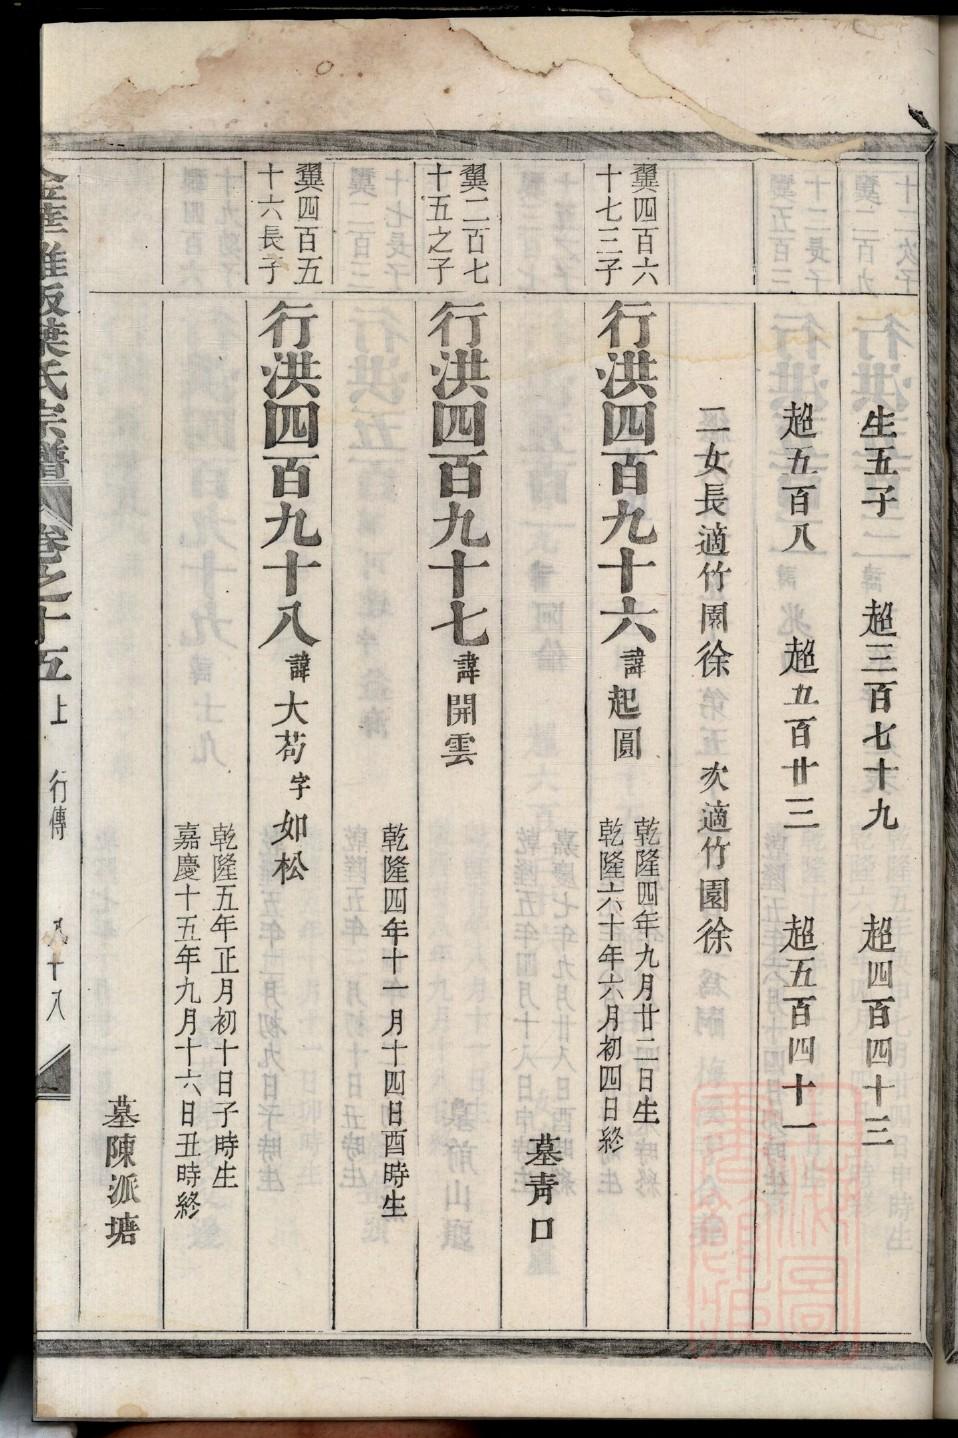 生五子　超三百七十九　超四百四十三
超五百八　超五百廿三　超五百四十一
二女長適竹園徐　次適竹園徐
翼四百六
十七三子
行洪四百九十六諱起圓
乾隆四年九月廿二日生
乾隆六十年六月初四日終
墓青口
翼二百七
十五之子
行洪四百九十七諱開雲
乾隆四年十一月十四日酉時生
翼四百五
十六長子
行洪四百九十八諱大苟字如松
乾隆五年正月初十日子時生
嘉慶十五年九月十六日丑時終
墓陳派塘
葉氏宗譜　卷之十五上　行傳　九十八